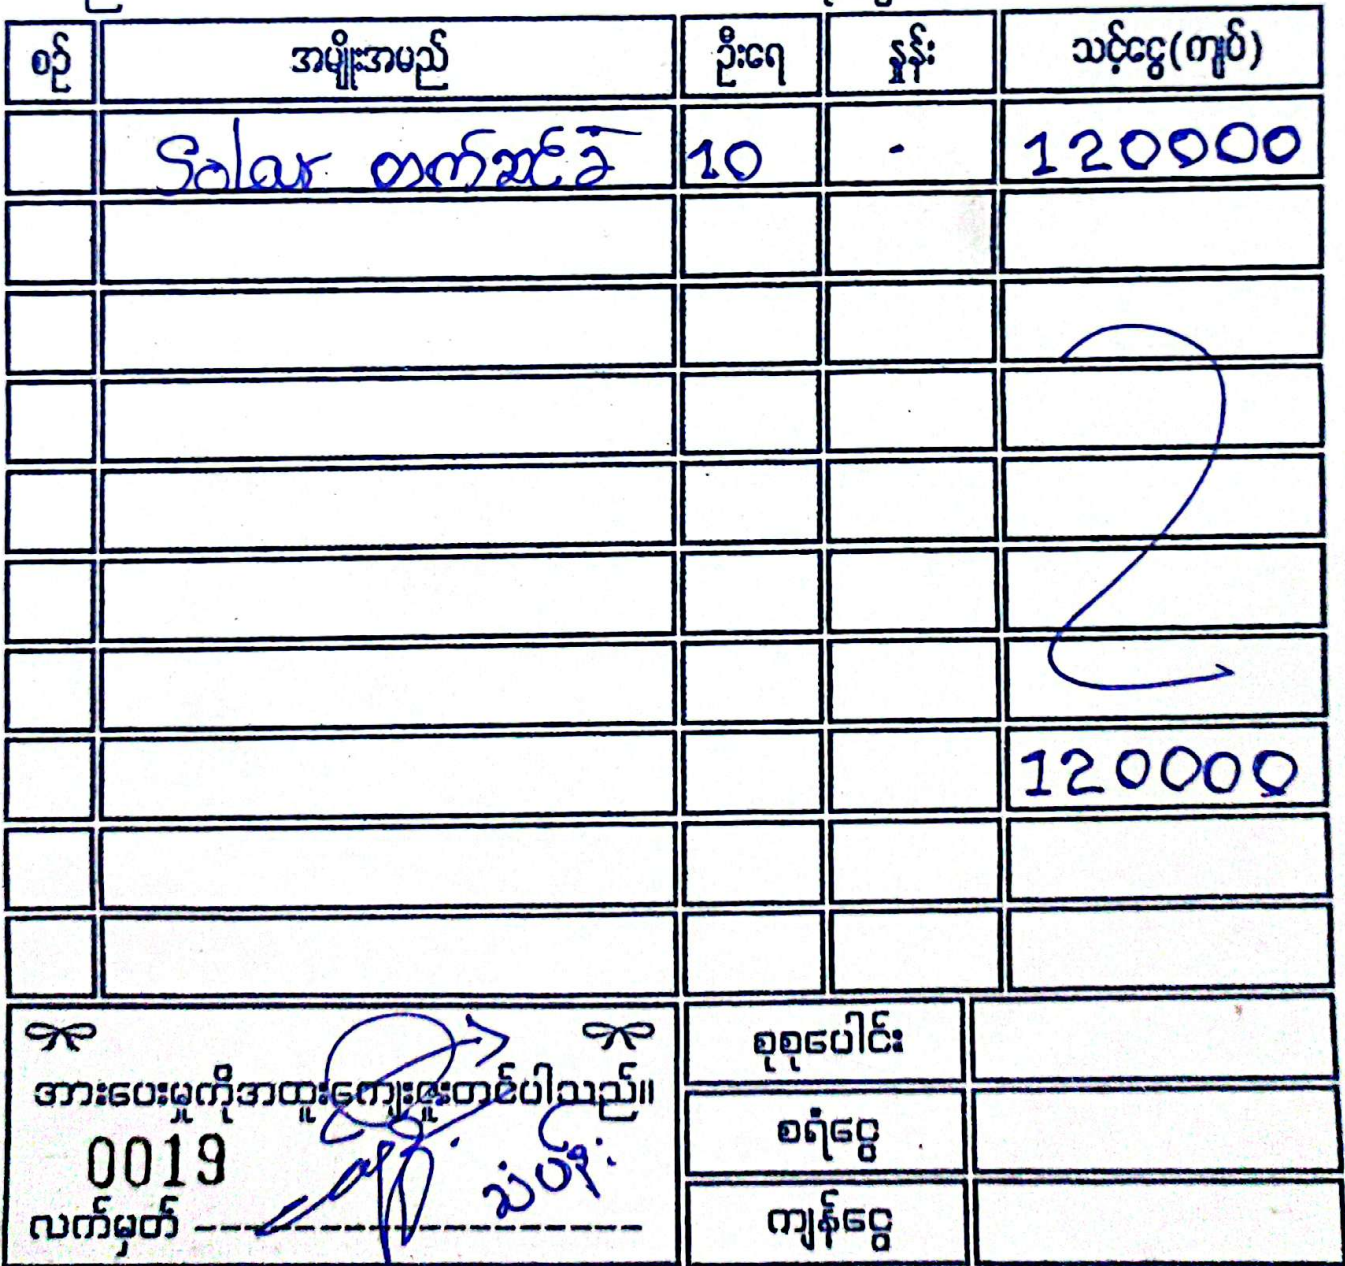 စဉ် အမျိုးအမည် ဦးရေ နှုန်း သင့်ငွေ(ကျပ်)
Solar တက်ဆင်ခ 10 - 120000
120000
အားပေးမှုကိုအထူးကျေးဇူးတင်ပါသည်။
0019
လက်မှတ်
စုစုပေါင်း
စရံငွေ
ကျန်ငွေ